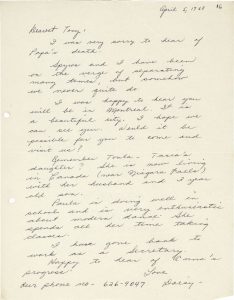 April 5, 1968
Dearest Tony,
I was very sorry to hear of
Papa's death.
Spyro and I have been
on the verge of separating
many times but somehow
we never quite do
I was happy to hear you
will be in Montreal. It is
a beautiful city. I hope we
can see you. Would it be
possible for you to come and
visit us?
Remember Toula - Tasia's
daughter? She is now living
in Canada (near Niagara Falls)
with her husband and 1 year
old son.
Paula is doing well in
school and is very enthusiastic
about modern dance. She
spends all her time taking
classes.
I have gone back to
work as a Secretary.
Happy to hear of
progress. Love
our phone no - 626-9047